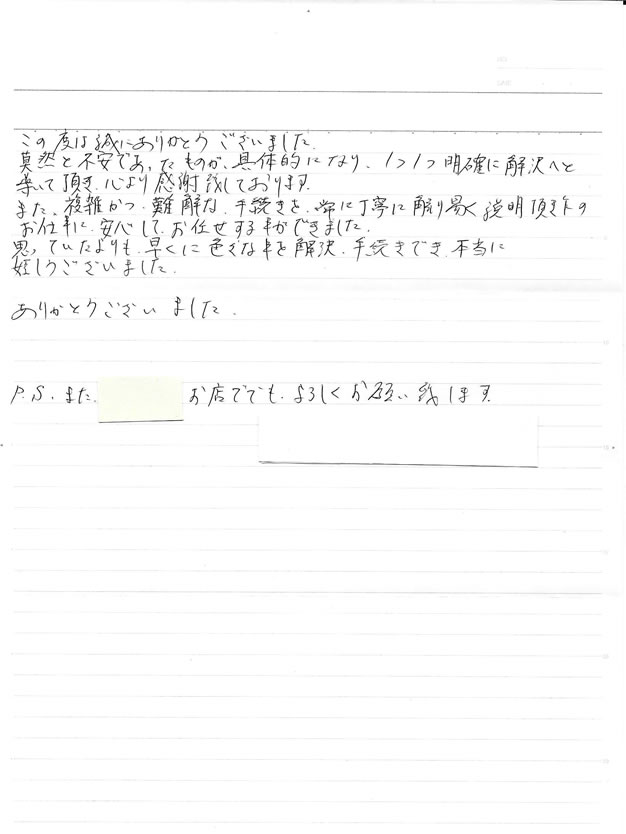 この度は誠にありがとうございました。
莫然と不安であったものが、具体的になり、1つ1つ明確に解決へと
導いて頂き、心より感謝致しております。
また、複雑かつ、難解な、手続きを、常に丁寧に解り易く説明頂き
お仕事に、安心して、お任せする事ができました。
思っていたよりも、早くに色々な事を解決、手続きでき、本当に
嬉しうございました。
ありがとうございました。
P.S. また、
お店でも、よろしくお願い致します。